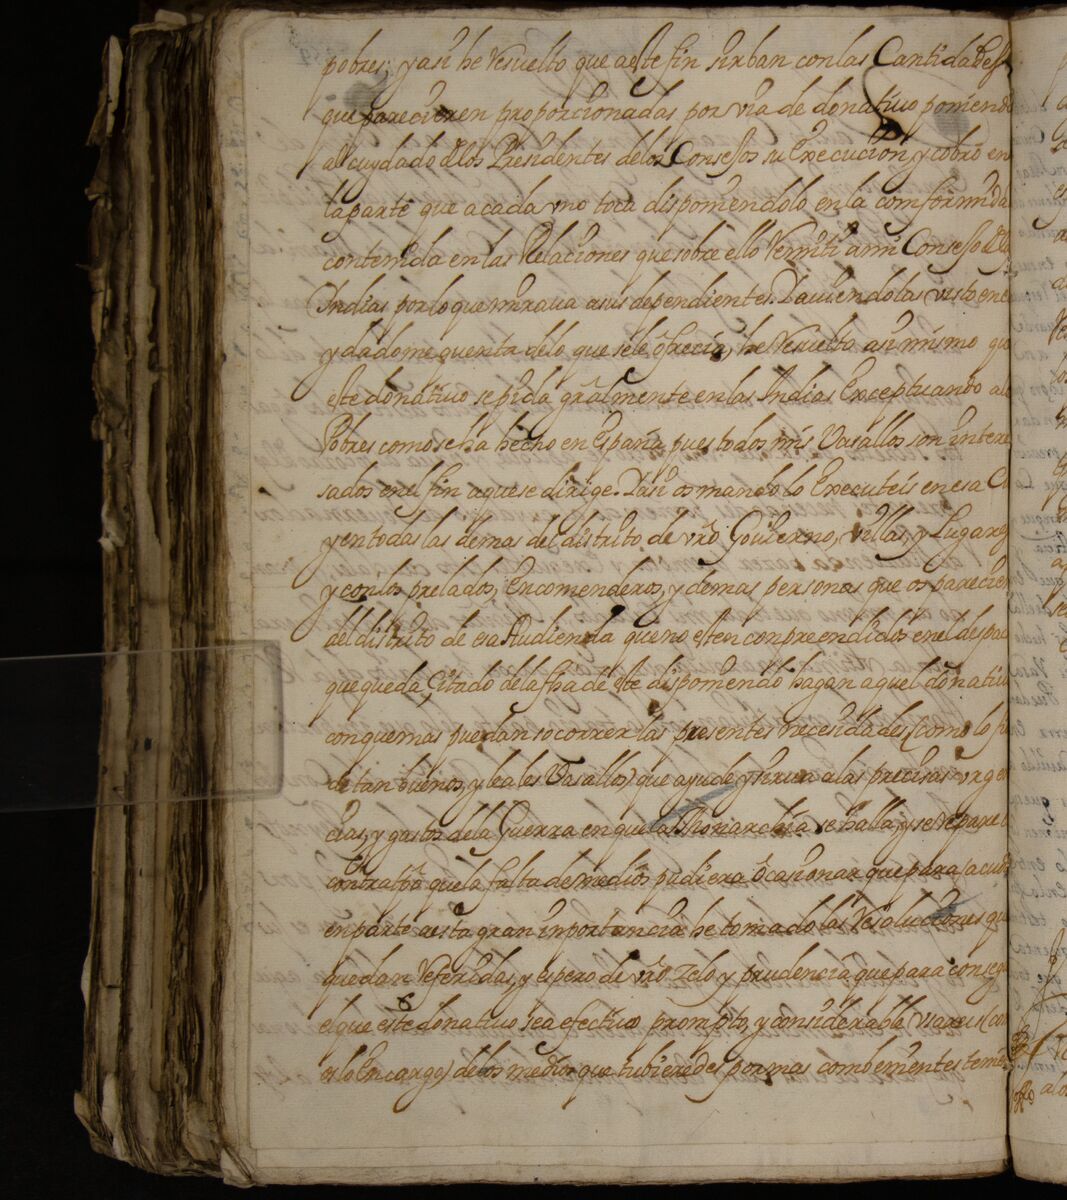 pobres: y asi he Resuelto que aeste fin sirban con las Cantidades
que parecieren proporcionadas por via de donatiuo poniendo
al cuydado dlos Presidentes delos Consejos su Execución, y cobro en
la parte que a cada vno toca disponiendolo en la conformida
contenida en las Relaçiones que sobre ello Remiti a mi Consejo dlas
Indias por lo que miraua a sus dependientes. Y auiendolas visto en el
y dadome quenta delo que sele ofrecia, he Resuelto asimismo que
este donatiuo se pida gralmente en las Indias Exceptuando a lo
Pobres como se ha hecho en España, pues todos mis Vasallos son intere
sados en el fin a que se dirige. Y asi os mando lo Executeis en esa Ci
y en todas las demas del distrito de vro Gouierno, Villas, y Lugares
y con los prelados, Encomenderos, y demas personas que os parecier
del distrito de esa Audiencia que no esten conpreendidos en el despac
que queda Citado dela fha de este disponiendo hagan aquel donatiuo
con que mas puedan socorrer las presentes necesidades (como lo fi
de tan buenos, y leales Vasallos) que ayude y sirua a las precisas vrgen
cias, y gastos dela Guerra en que la Monarchia se halla, y se repare l
que la falta de medios pudiera ocasionar que para acudir
en parte a esta gran inportancia he tomado las Resoluciones que
quedan Referidas, y espero de vro zelo y prudencia que para conseg
el que este donatiuo sea efectiuo prompto, y considerable vsareis (com
os lo Encargo) delos medios que tubieredes por mas combenientes